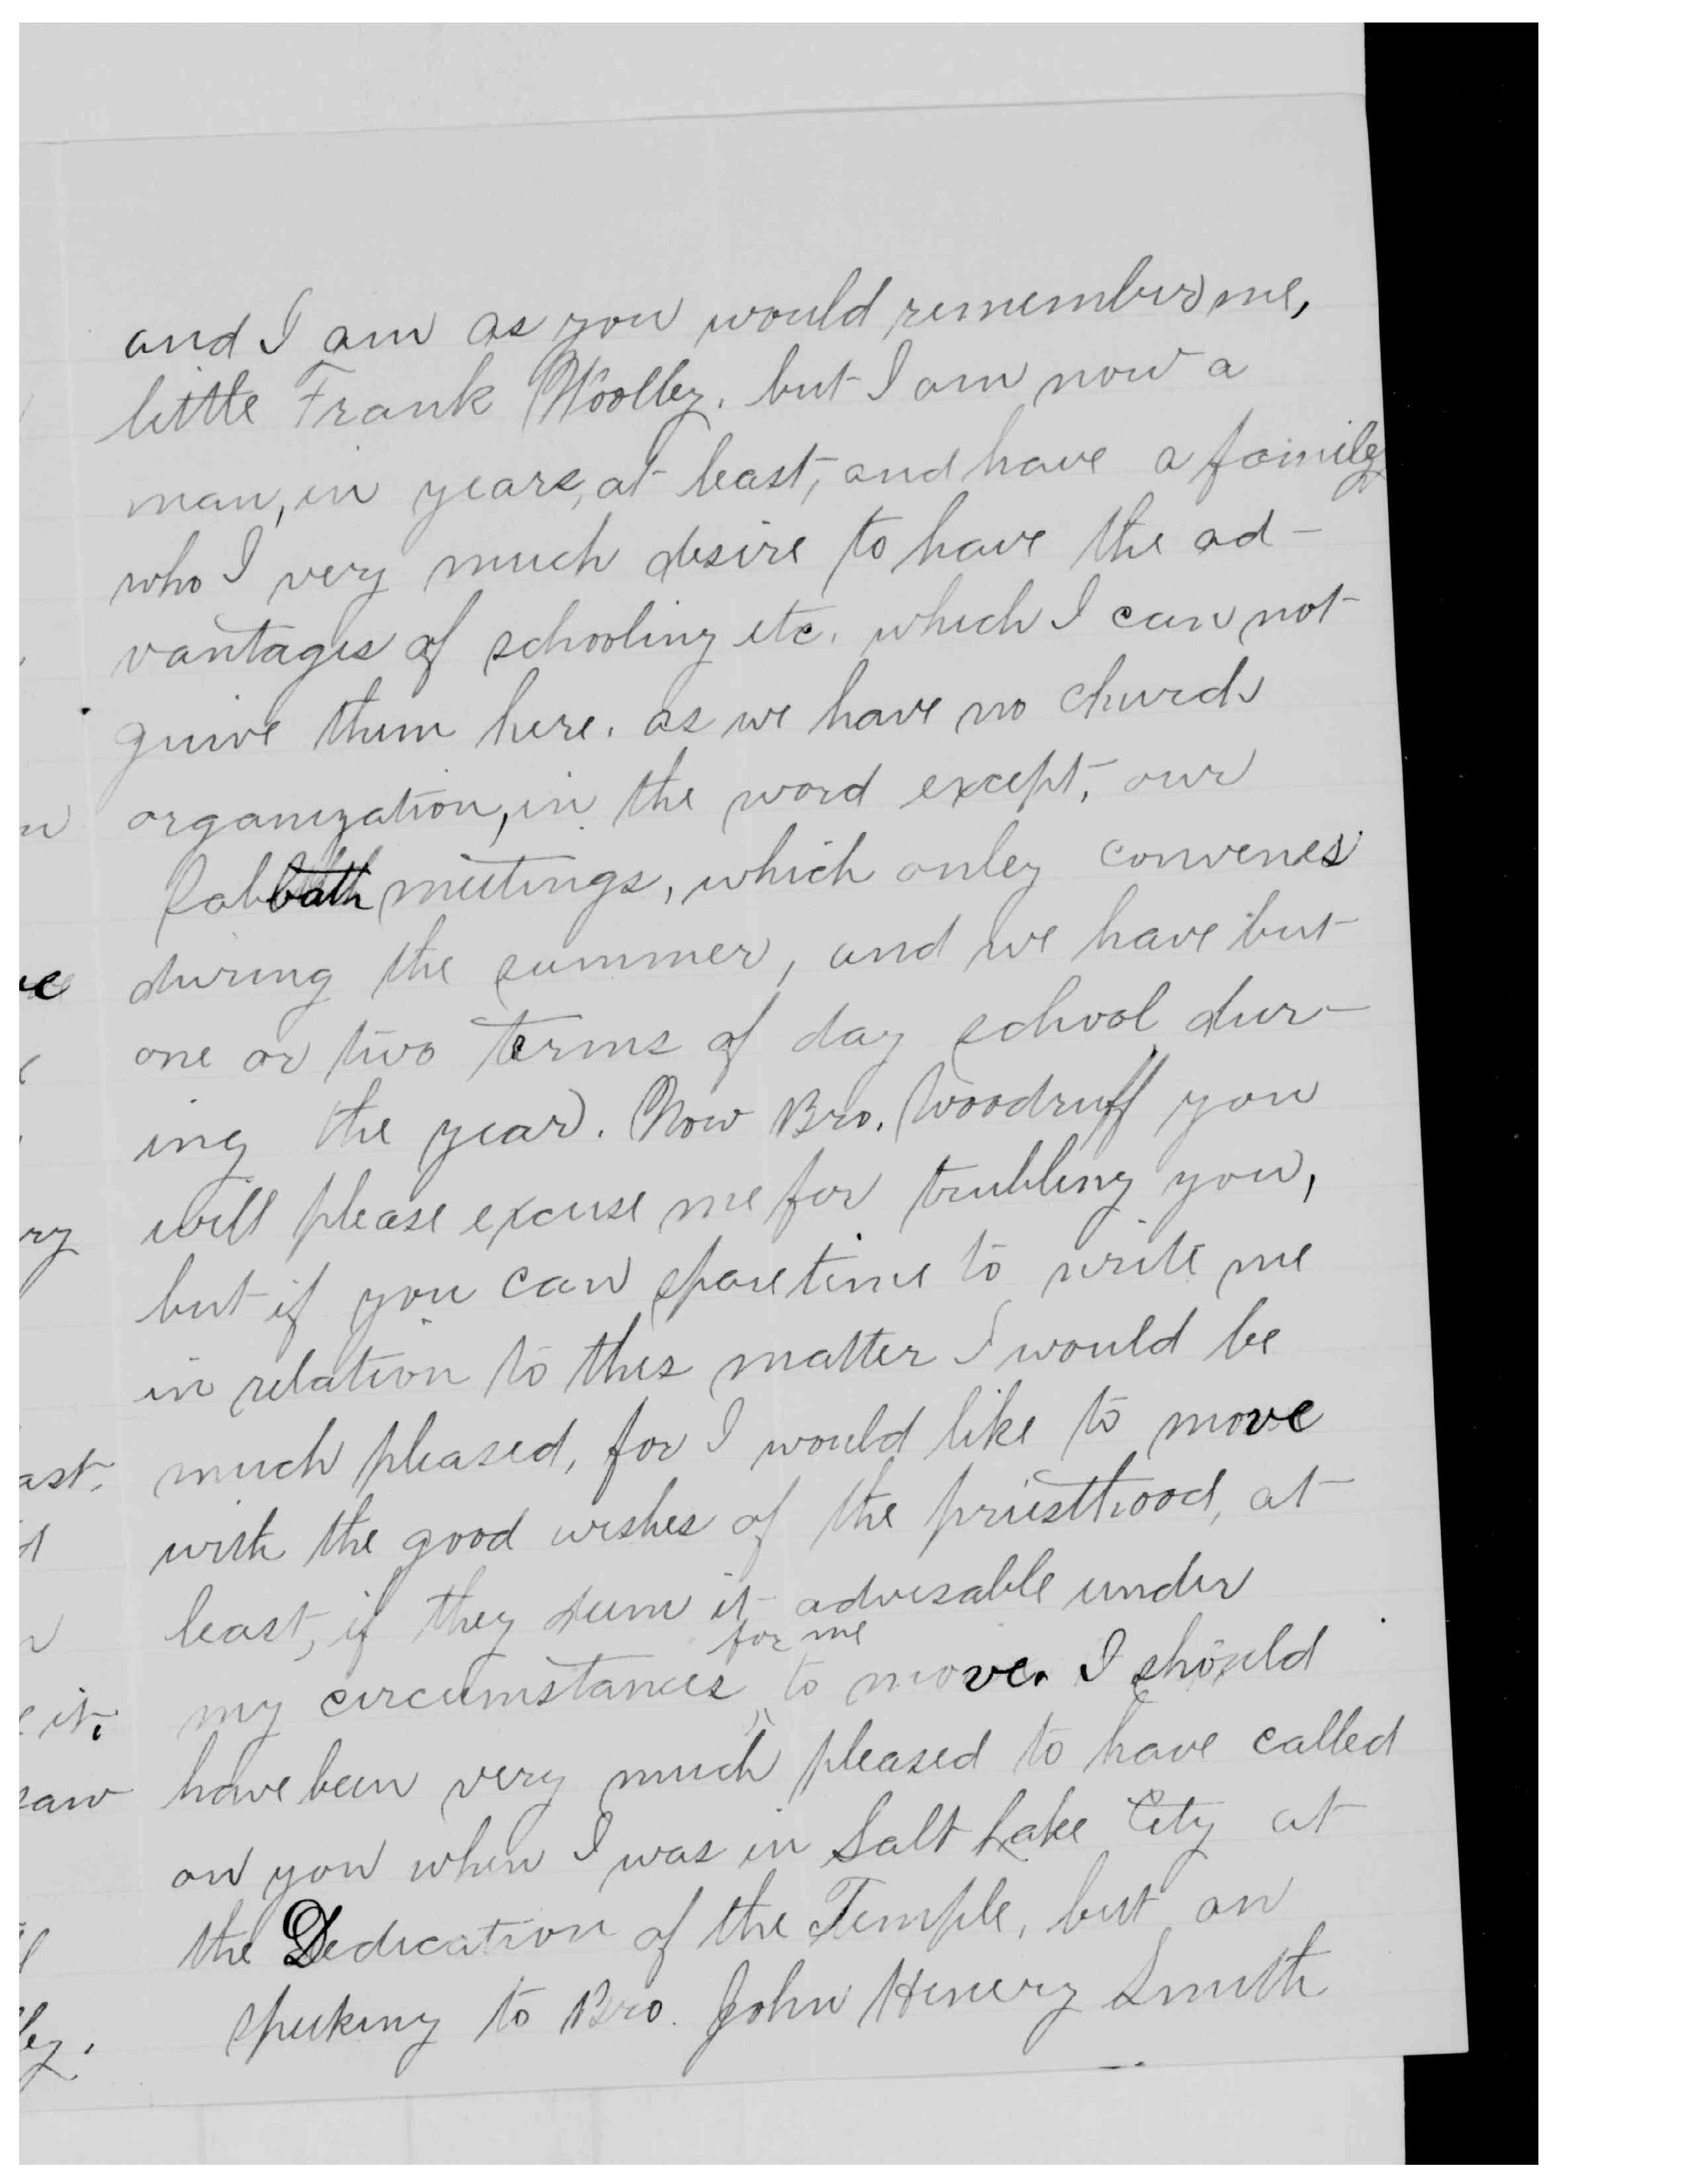 and I am as you would remember me,
little Frank Woolley. but I am now a
man, in years, at least, and have a family
who I very much desire to have the ad-
vantages of schooling etc. which I can not
guive them here. as we have no church
organization, in the word except, our
Sabbath meetings, which onley convenes
during the summer, and we have but
one or two terms of day school dur-
ing the year. Now Bro. Woodruff you
will please excuse me for trubling you,
but if you can spare time to write me
in relation to this matter I would be
much pleased, for I would like to move
with the good wishes of the priesthood, at
least, if they deem it advisable under
for me
my circumstances, to move. I should
have been very much pleased to have called
on you when I was in Salt Lake City at
the Dedication of the Temple, but on
speeking to Bro. John Henery Smith